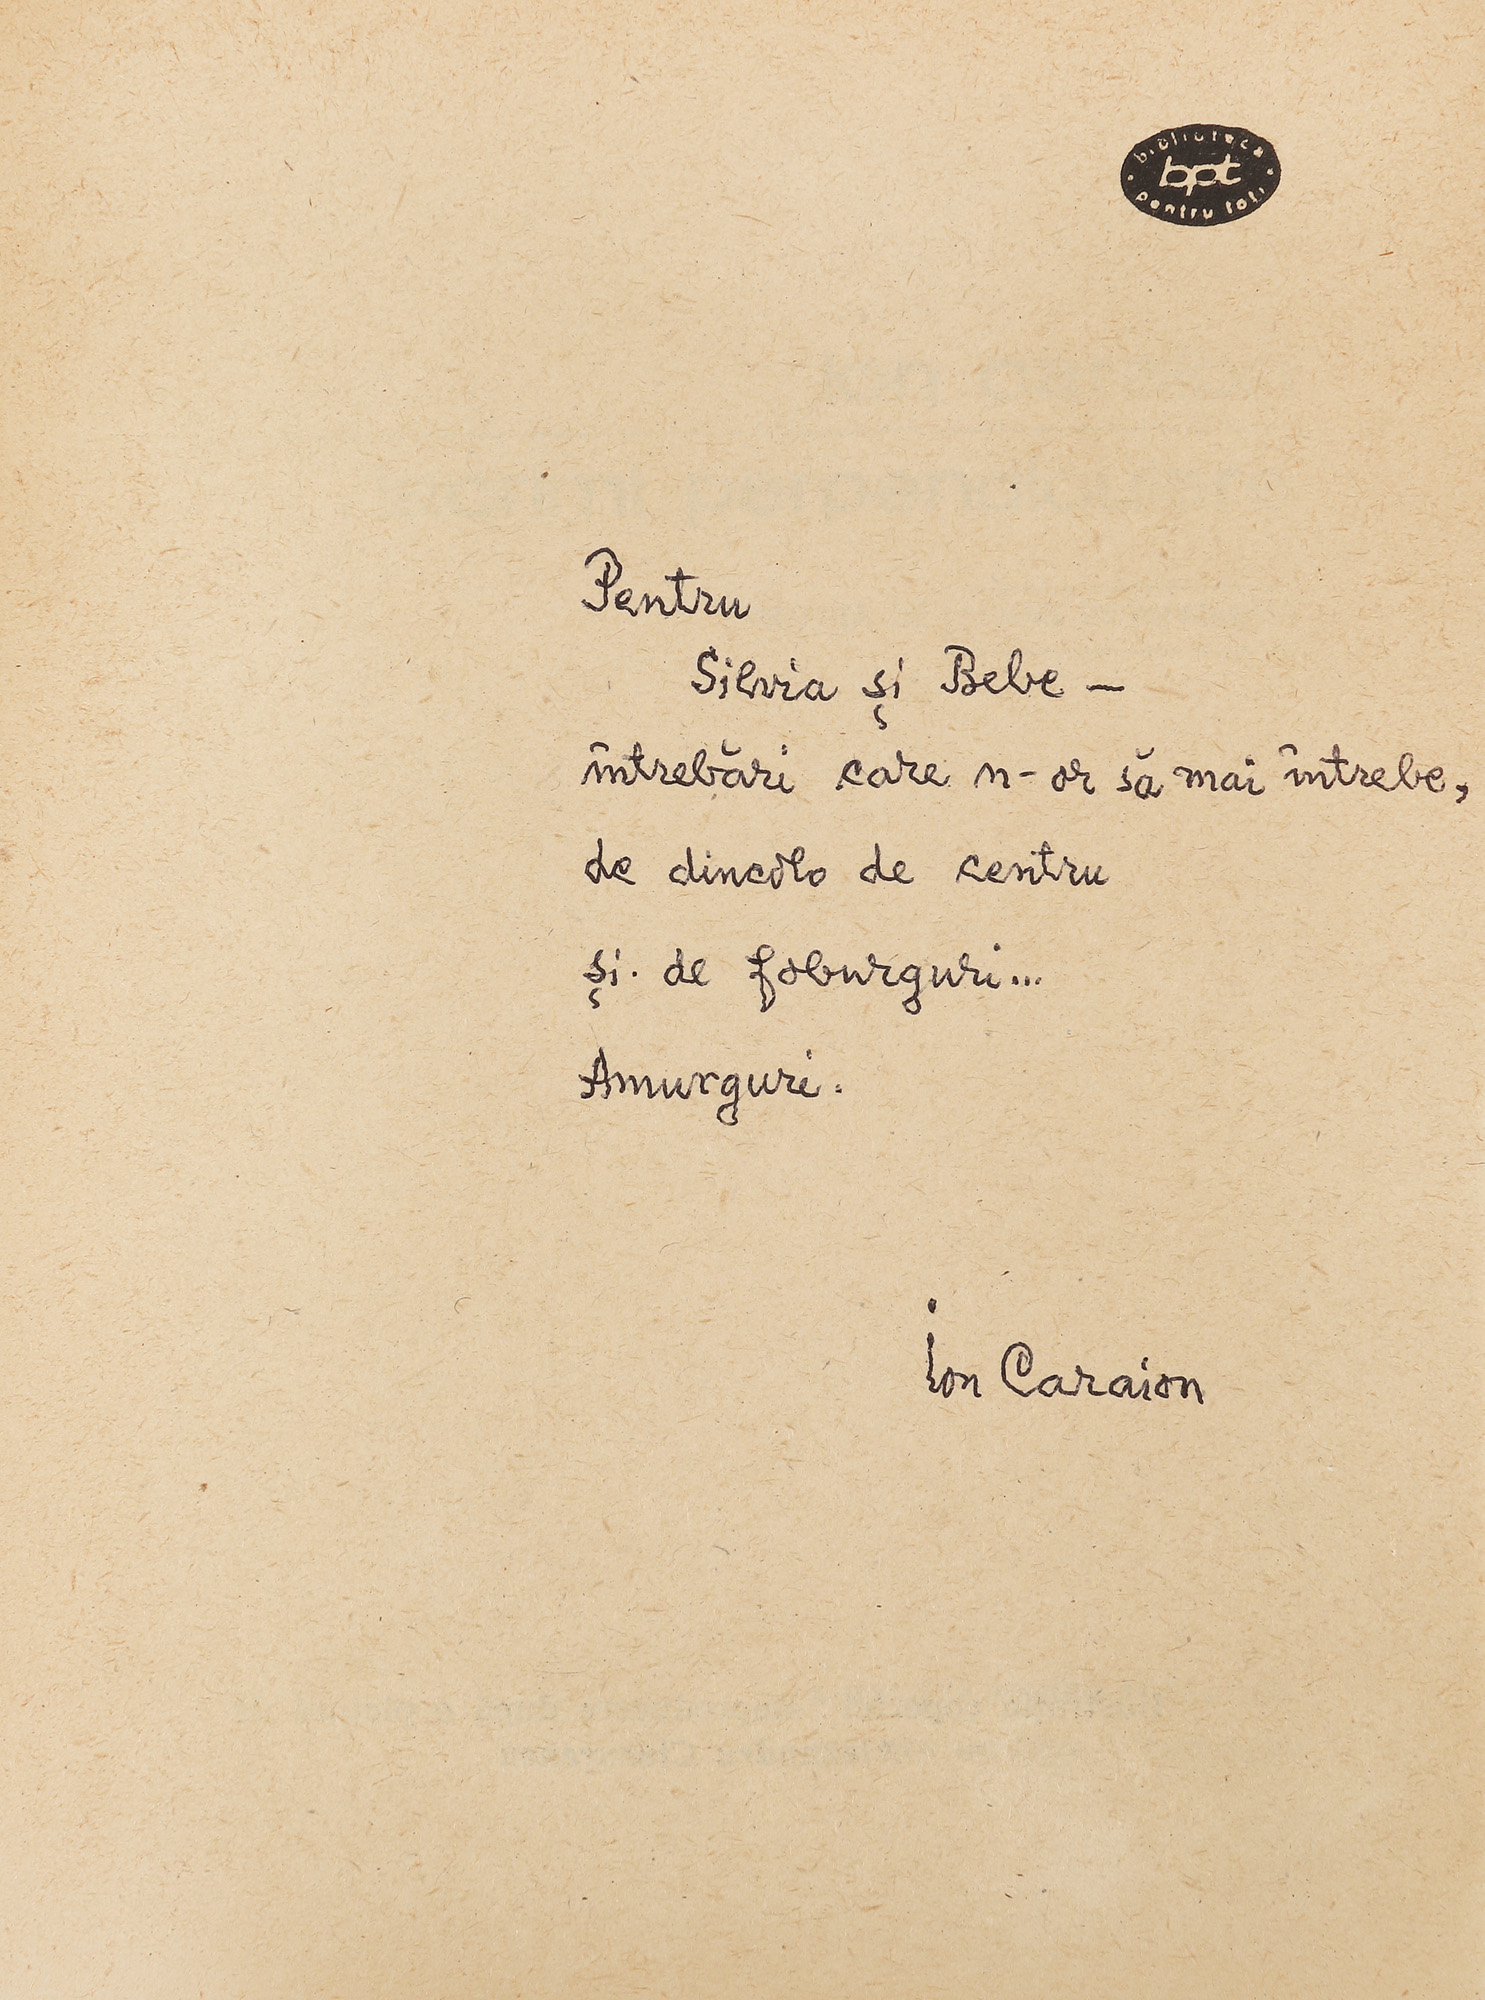 biblioteca
bpt
pentru toți
Pentru
Silvia și Bebe —
întrebări care n-or să mai întrebe,
de dincolo de centru
și de foburguri...
Amurguri.
Ion Caraion